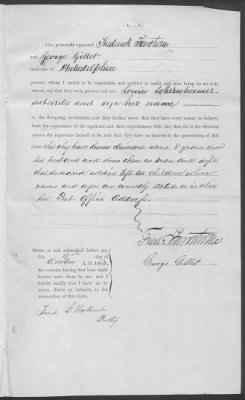 Also personally appeared, Frederick
and George Gillet
residents of Philadelphia
persons whom I certify to be respectable and entitled to credit, and who being by me duly
sworn, say that they were present and saw Louise
subscribe and sign her name
to the foregoing declaration, and they further swear that they have every reason to believe,
from the appearance of the applicant and their acquaintance with her, that she is the identical
person she represents herself to be, and that they have no interest in the prosecution of this
claim that they have known claimant some 8 years
her husband and knew them as man and wife
this deceased soldier left children whose
names and ages are correctly stated as is also
her Post Office Address
Sworn to and subscribed before me,
this day of
October A. D. 186
the contents having first been made
known unto them by me; and I
hereby certify that I have no in-
terest, direct or indirect, in the
prosecution of this claim.
George Gillet
Fred